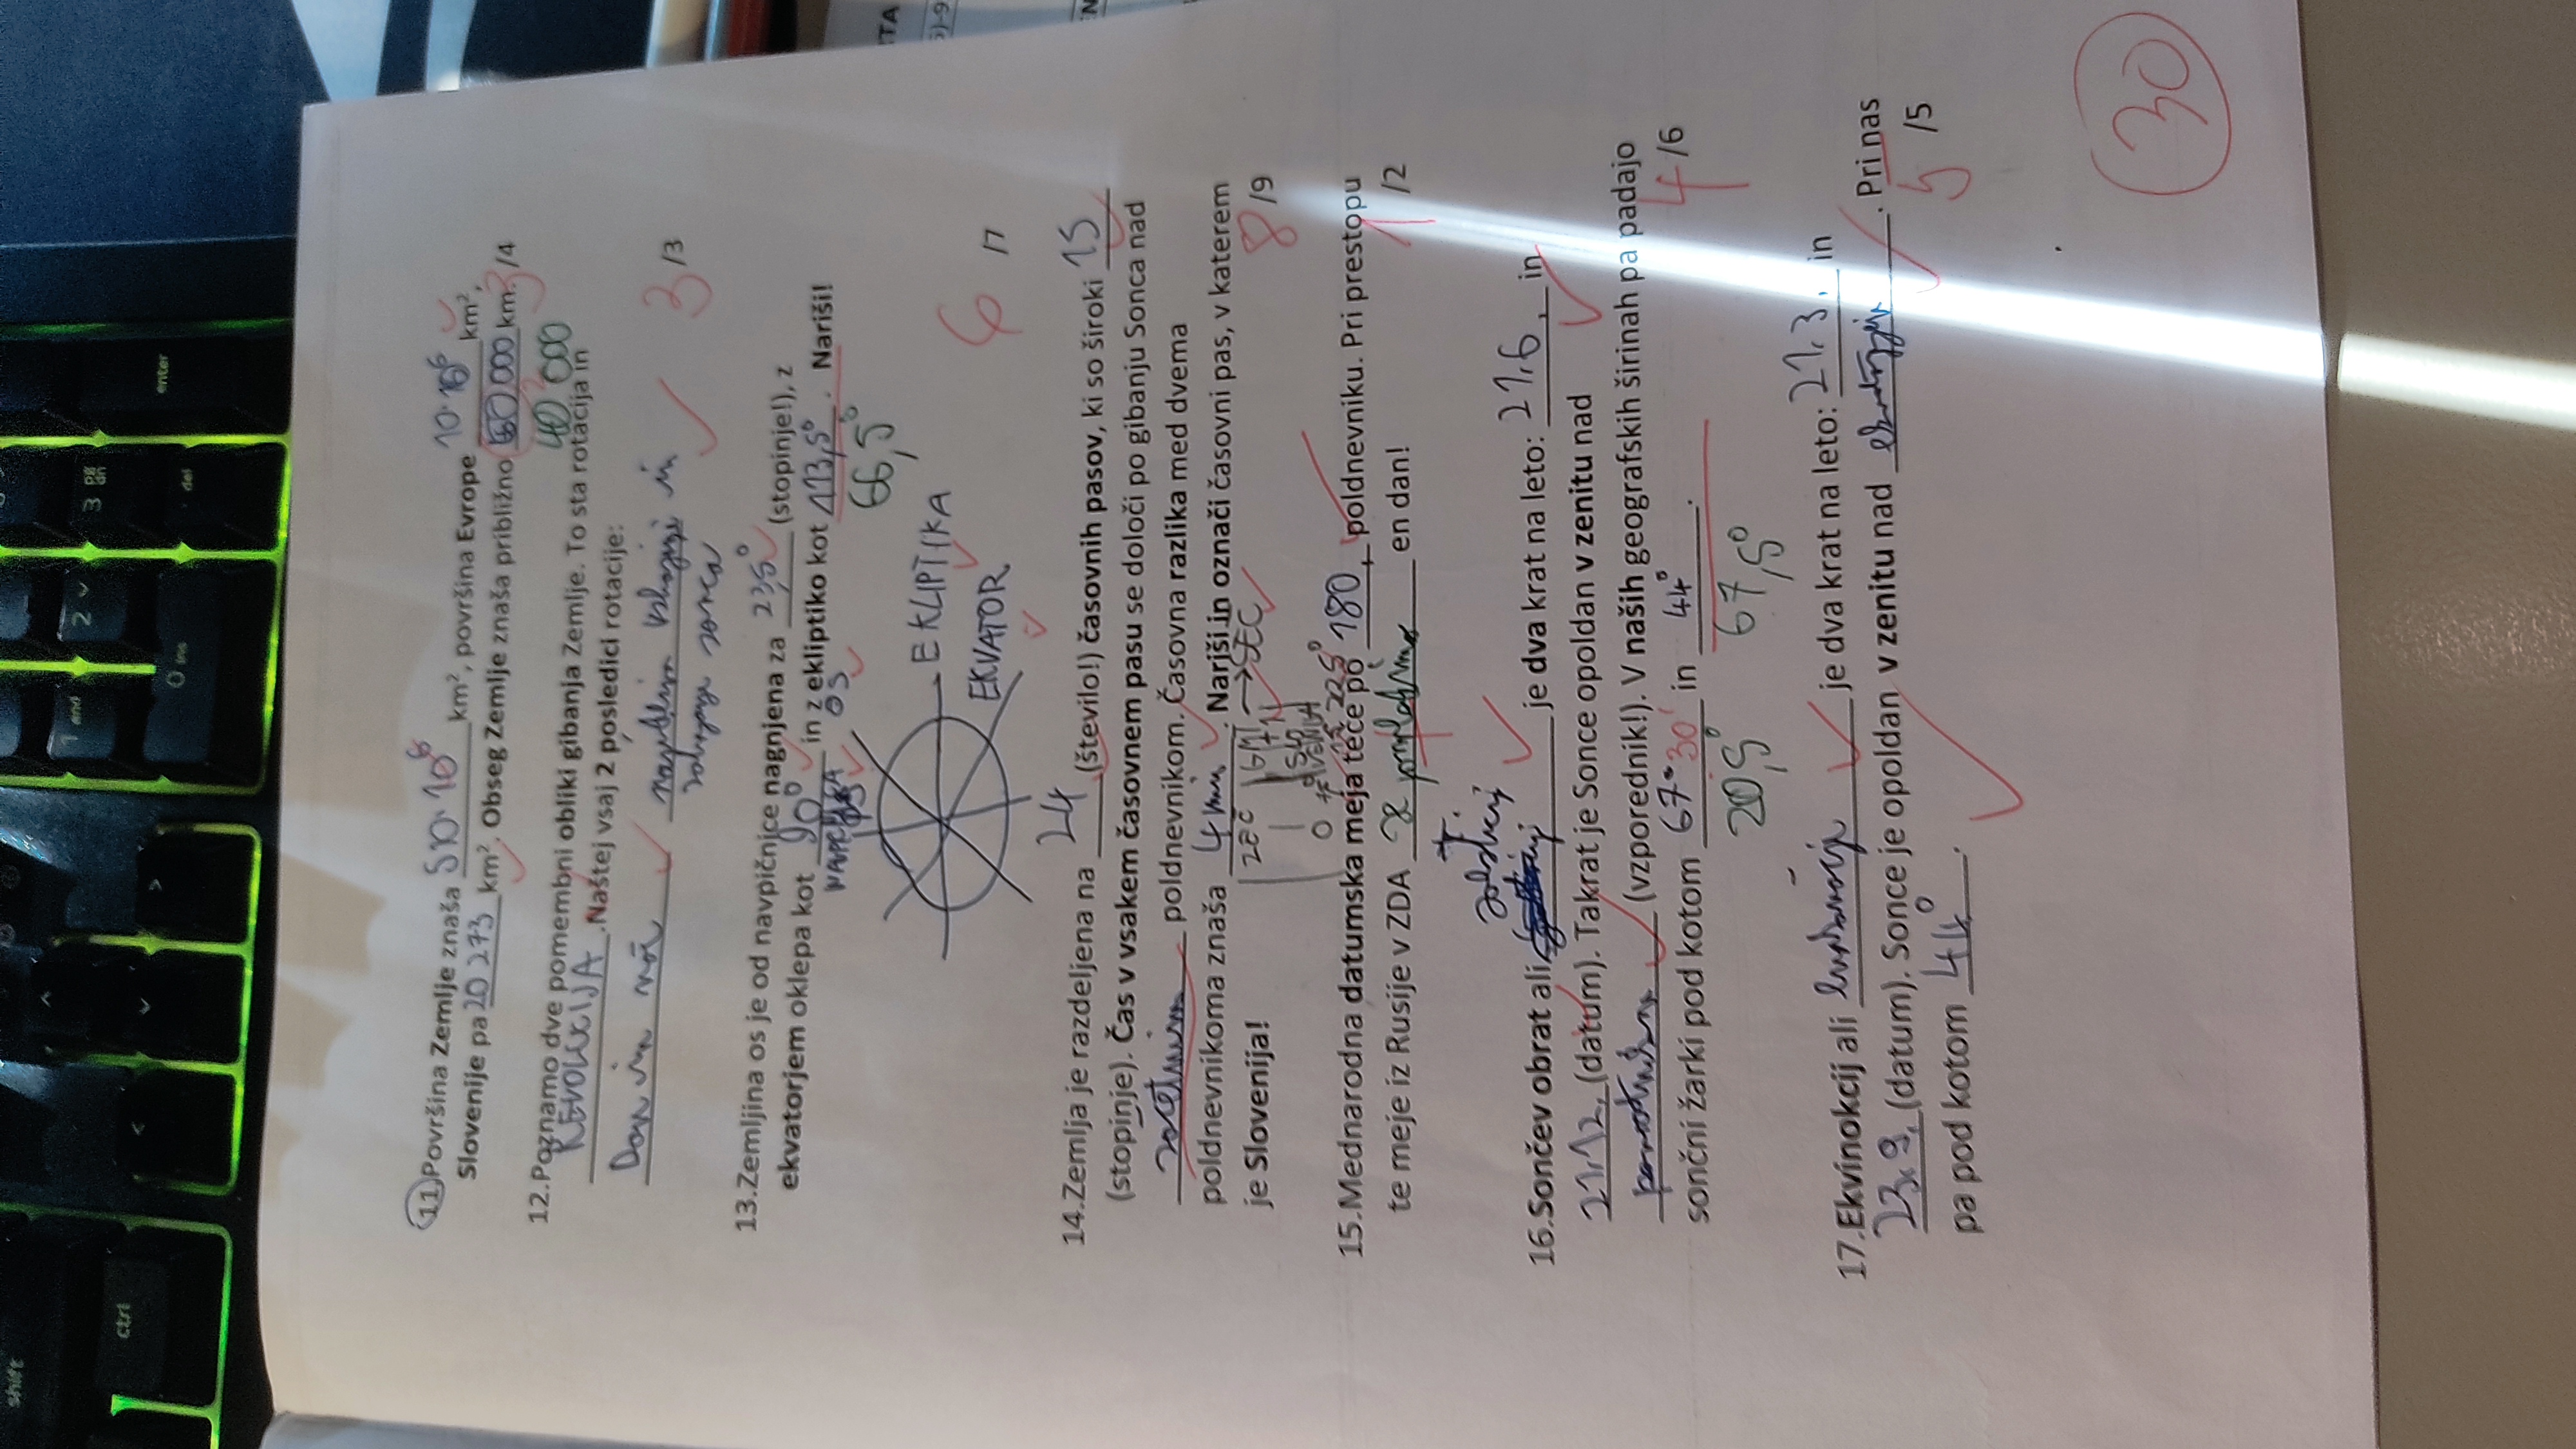 shift
ctrl
1 end
2
3 pg dn
0 ins
del
enter
11. Površina Zemlje znaša 510·10⁶ km², površina Evrope 10·10⁶ km²,
Slovenije pa 20 273 km². Obseg Zemlje znaša približno 60 000 km. 3 /4
40 000
12. Poznamo dve pomembni obliki gibanja Zemlje. To sta rotacija in
REVOLUCIJA. Naštej vsaj 2 posledici rotacije:
Dan in noč in
sonca
3 /3
13. Zemljina os je od navpičnice nagnjena za 23,5° (stopinje!), z
ekvatorjem oklepa kot 90° in z ekliptiko kot 113,5°. Nariši!
66,5°
NAVPIČNICA OS
EKLIPTIKA
EKVATOR
6 /7
14. Zemlja je razdeljena na 24 (število!) časovnih pasov, ki so široki 15
(stopinje). Čas v vsakem časovnem pasu se določi po gibanju Sonca nad
začetnim poldnevnikom. Časovna razlika med dvema
poldnevnikoma znaša 4 min. Nariši in označi časovni pas, v katerem
je Slovenija!
ZEČ GMT → SEČ
+1
0 SLOVENIJA
8 /9
15 22,5°
15. Mednarodna datumska meja teče po 180. poldnevniku. Pri prestopu
te meje iz Rusije v ZDA en dan!
1 /2
solsticij
16. Sončev obrat ali je dva krat na leto: 21.6. in
21.12. (datum). Takrat je Sonce opoldan v zenitu nad
(vzporednik!). V naših geografskih širinah pa padajo
sončni žarki pod kotom 67° 30' in 44°.
4 /6
20,5° 67,5°
17. Ekvinokcij ali enakonočje je dva krat na leto: 21.3. in
23.9. (datum). Sonce je opoldan v zenitu nad ekvatorjem. Pri nas
pa pod kotom 44°.
5 /5
30